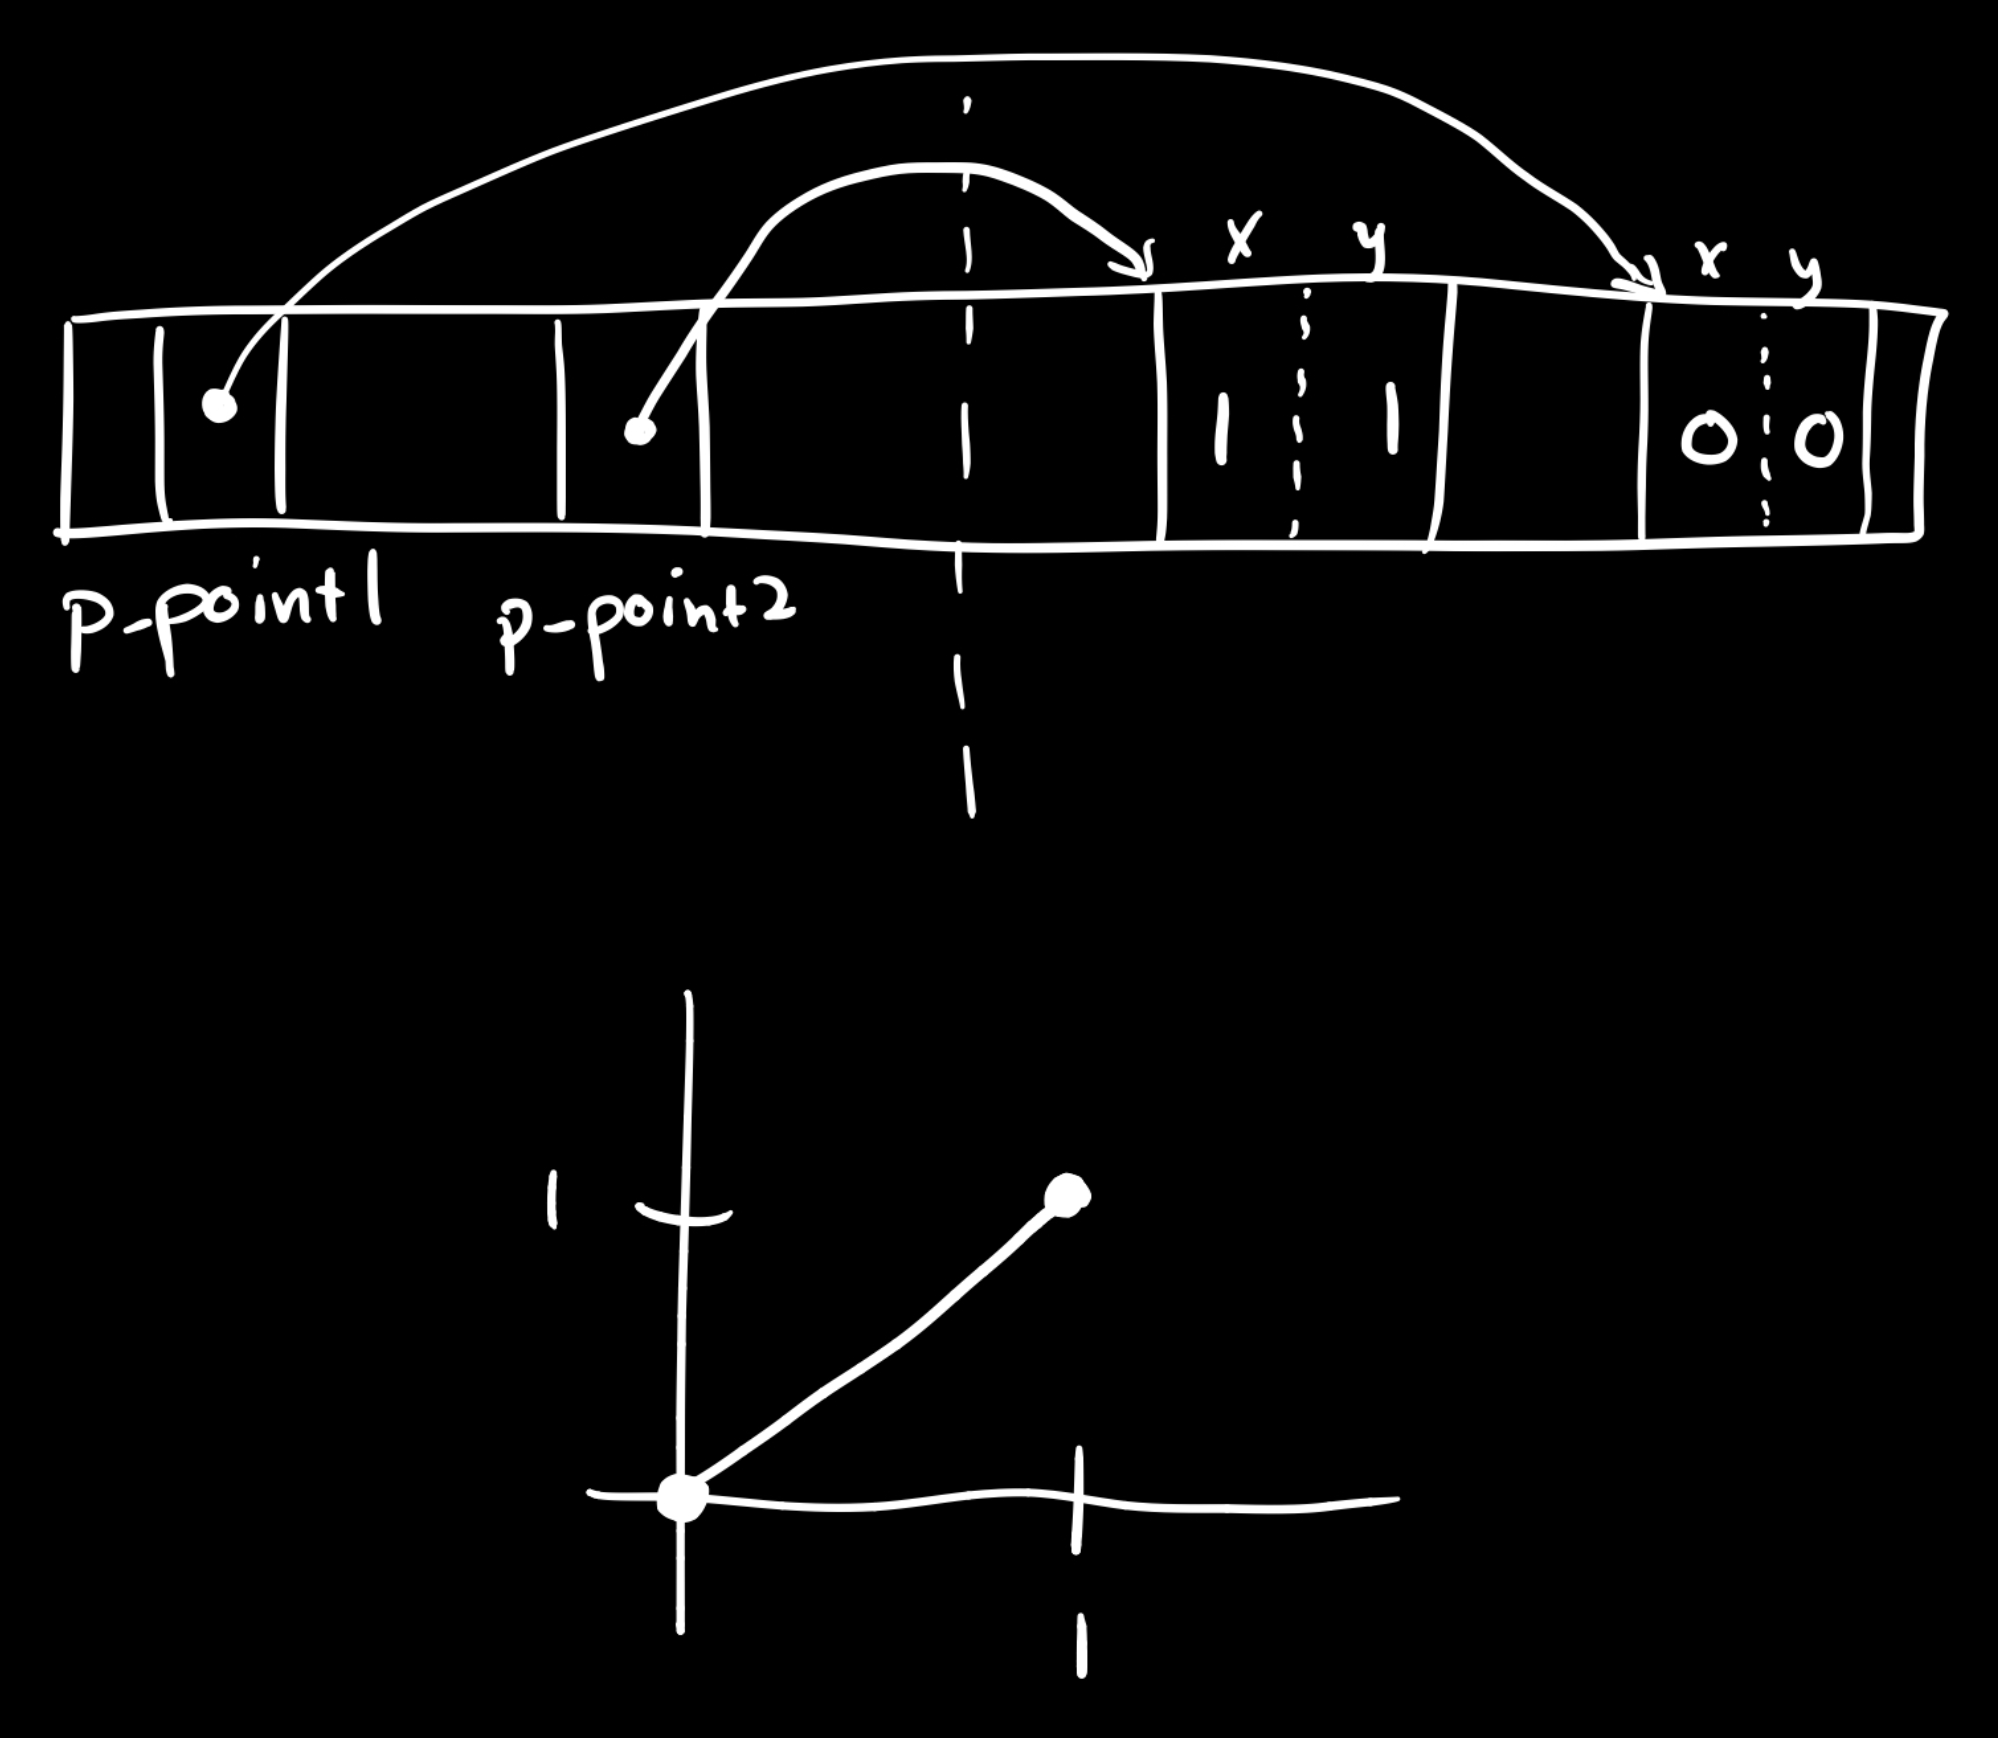 x y x y
1 1 0 0
p-point1 p-point2
1
1